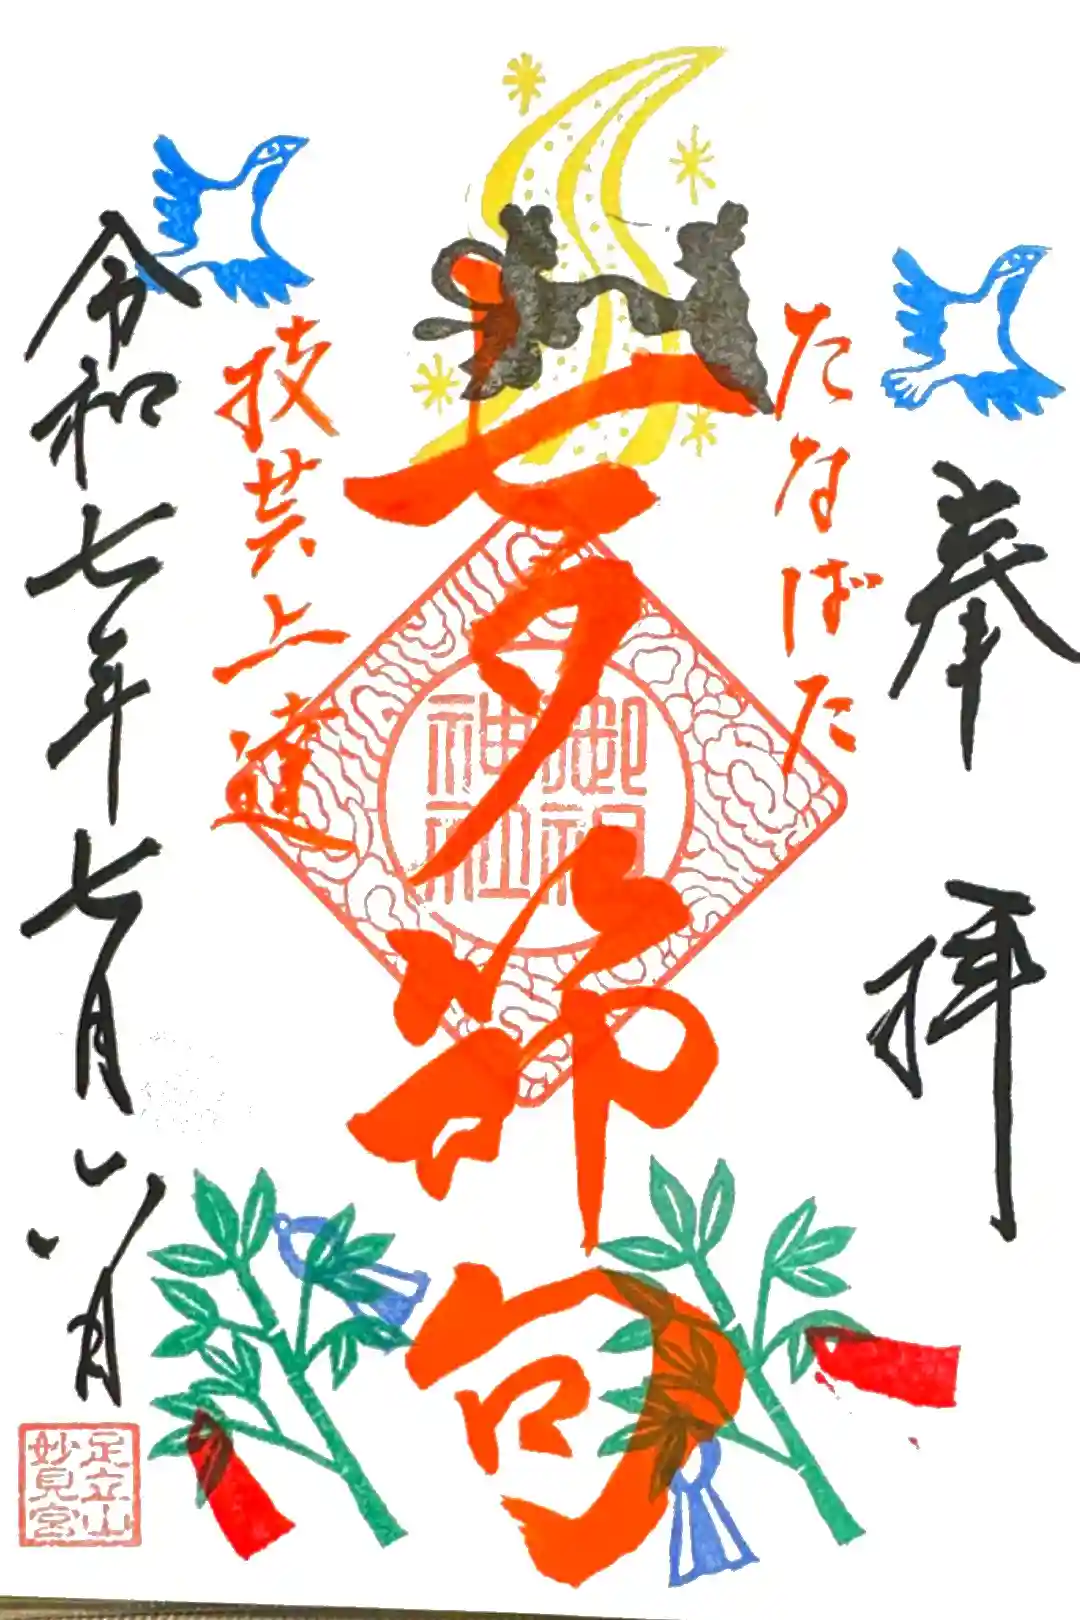 奉拝
たなばた
七夕節句
御祖
神社
技芸上達
令和七年七月八日
足立山
妙見宮